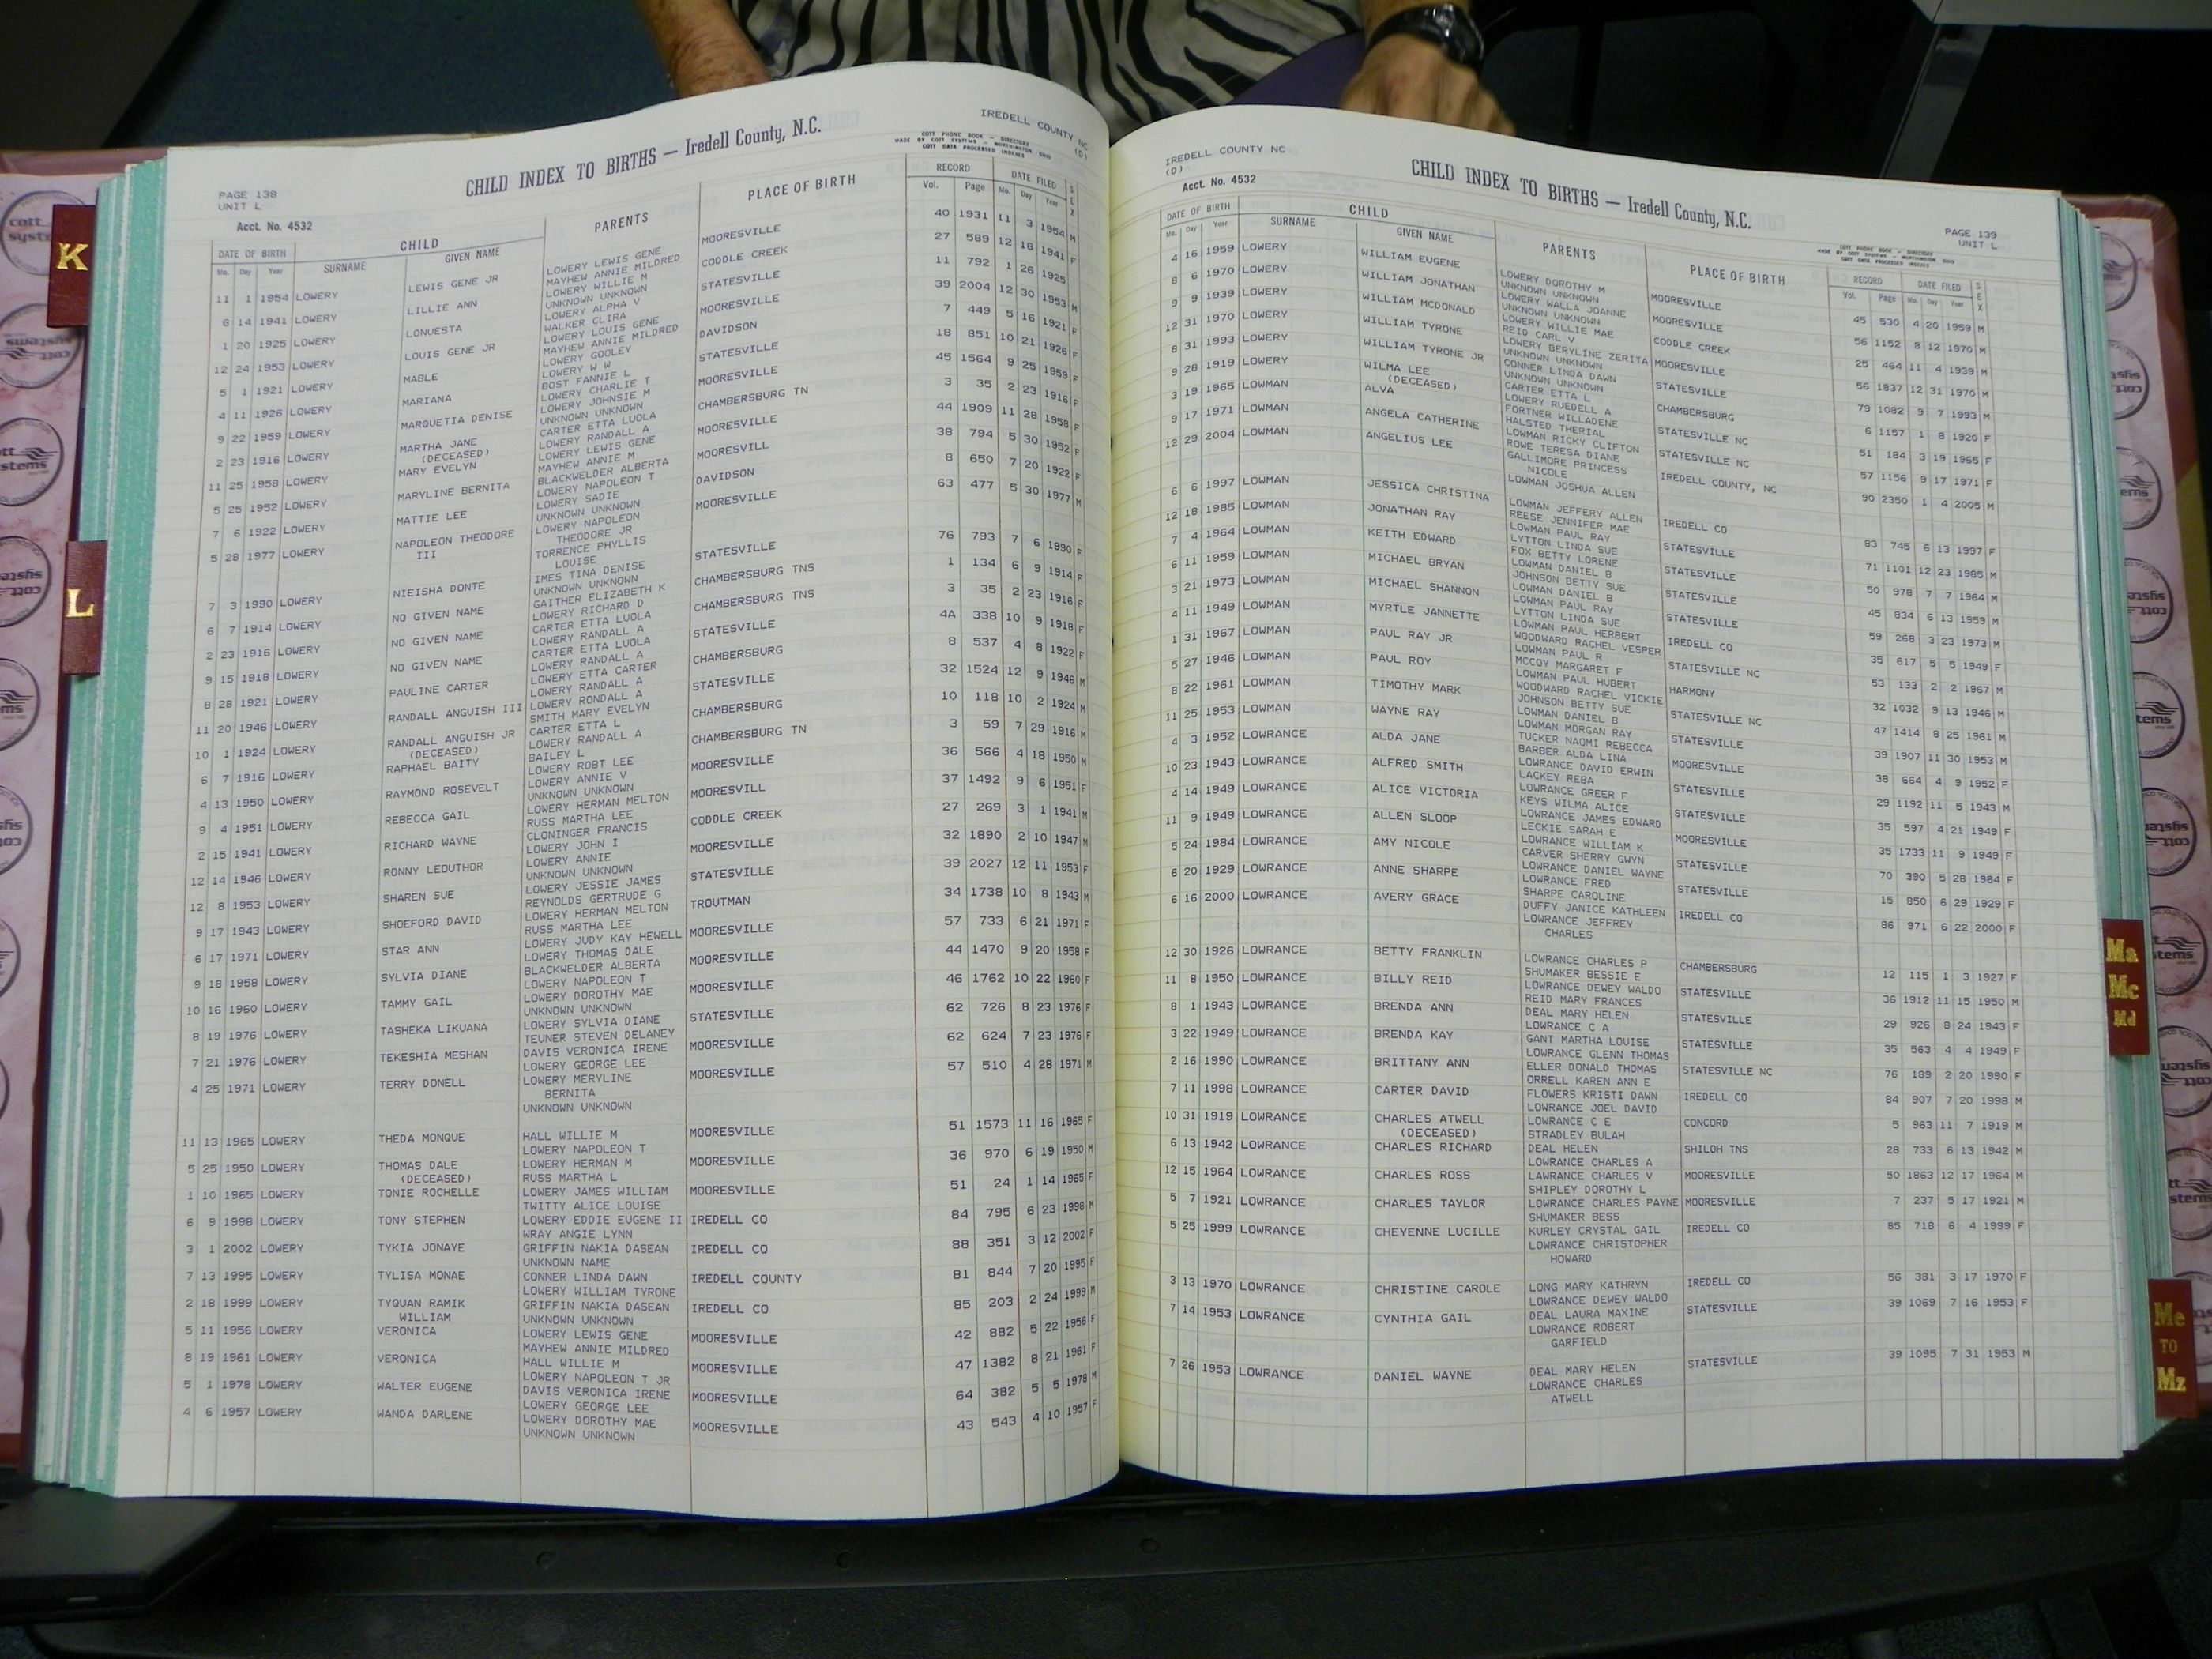 CHILD INDEX TO BIRTHS — Iredell County, N.C.
IREDELL COUNTY NC
(D)
COTT PHONE BOOK — DIRECTORY
MADE BY COTT SYSTEMS — WORTHINGTON, OHIO
COTT DATA PROCESSED INDEXES
PAGE 138
UNIT L
Acct. No. 4532
DATE OF BIRTH CHILD PARENTS PLACE OF BIRTH RECORD DATE FILED SEX
Mo. Day Year SURNAME GIVEN NAME Vol. Page Mo. Day Year
11 1 1954 LOWERY LEWIS GENE JR LOWERY LEWIS GENE MOORESVILLE 40 1931 11 3 1954 M
MAYHEW ANNIE MILDRED
6 14 1941 LOWERY LILLIE ANN LOWERY WILLIE M CODDLE CREEK 27 589 12 18 1941 F
UNKNOWN UNKNOWN
1 20 1925 LOWERY LONUESTA LOWERY ALPHA V STATESVILLE 11 792 1 26 1925
WALKER CLIRA
12 24 1953 LOWERY LOUIS GENE JR LOWERY LOUIS GENE MOORESVILLE 39 2004 12 30 1953 M
MAYHEW ANNIE MILDRED
5 1 1921 LOWERY MABLE LOWERY GOOLEY DAVIDSON 7 449 5 16 1921 F
LOWERY W W
4 11 1926 LOWERY MARIANA BOST FANNIE L STATESVILLE 18 851 10 21 1926 F
LOWERY CHARLIE T
9 22 1959 LOWERY MARQUETIA DENISE LOWERY JOHNSIE M MOORESVILLE 45 1564 9 25 1959 F
UNKNOWN UNKNOWN
2 23 1916 LOWERY MARTHA JANE CARTER ETTA LUOLA CHAMBERSBURG TN 3 35 2 23 1916 F
(DECEASED) LOWERY RANDALL A
11 25 1958 LOWERY MARY EVELYN LOWERY LEWIS GENE MOORESVILLE 44 1909 11 28 1958 F
MAYHEW ANNIE M
5 25 1952 LOWERY MARYLINE BERNITA BLACKWELDER ALBERTA MOORESVILL 38 794 5 30 1952 F
LOWERY NAPOLEON T
7 6 1922 LOWERY MATTIE LEE LOWERY SADIE DAVIDSON 8 650 7 20 1922 F
UNKNOWN UNKNOWN
5 28 1977 LOWERY NAPOLEON THEODORE LOWERY NAPOLEON MOORESVILLE 63 477 5 30 1977 M
III THEODORE JR
TORRENCE PHYLLIS
LOUISE
7 3 1990 LOWERY NIEISHA DONTE IMES TINA DENISE STATESVILLE 76 793 7 6 1990 F
UNKNOWN UNKNOWN
6 7 1914 LOWERY NO GIVEN NAME GAITHER ELIZABETH K CHAMBERSBURG TNS 1 134 6 9 1914 F
LOWERY RICHARD D
2 23 1916 LOWERY NO GIVEN NAME CARTER ETTA LUOLA CHAMBERSBURG TNS 3 35 2 23 1916 F
LOWERY RANDALL A
9 15 1918 LOWERY NO GIVEN NAME CARTER ETTA LUOLA STATESVILLE 4A 338 10 9 1918 F
LOWERY RANDALL A
8 28 1921 LOWERY PAULINE CARTER LOWERY ETTA CARTER CHAMBERSBURG 8 537 4 8 1922 F
LOWERY RANDALL A
11 20 1946 LOWERY RANDALL ANGUISH III LOWERY RONDALL A STATESVILLE 32 1524 12 9 1946 M
SMITH MARY EVELYN
10 1 1924 LOWERY RANDALL ANGUISH JR CARTER ETTA L CHAMBERSBURG 10 118 10 2 1924 M
(DECEASED) LOWERY RANDALL A
6 7 1916 LOWERY RAPHAEL BAITY BAILEY L CHAMBERSBURG TN 3 59 7 29 1916 M
LOWERY ROBT LEE
4 13 1950 LOWERY RAYMOND ROSEVELT LOWERY ANNIE V MOORESVILLE 36 566 4 18 1950 M
UNKNOWN UNKNOWN
9 4 1951 LOWERY REBECCA GAIL LOWERY HERMAN MELTON MOORESVILL 37 1492 9 6 1951 F
RUSS MARTHA LEE
2 15 1941 LOWERY RICHARD WAYNE CLONINGER FRANCIS CODDLE CREEK 27 269 3 1 1941 M
LOWERY JOHN I
12 14 1946 LOWERY RONNY LEOUTHOR LOWERY ANNIE MOORESVILLE 32 1890 2 10 1947 M
UNKNOWN UNKNOWN
12 8 1953 LOWERY SHAREN SUE LOWERY JESSIE JAMES STATESVILLE 39 2027 12 11 1953 F
REYNOLDS GERTRUDE G
9 17 1943 LOWERY SHOEFORD DAVID LOWERY HERMAN MELTON TROUTMAN 34 1738 10 8 1943 M
RUSS MARTHA LEE
6 17 1971 LOWERY STAR ANN LOWERY JUDY KAY HEWELL MOORESVILLE 57 733 6 21 1971 F
LOWERY THOMAS DALE
9 18 1958 LOWERY SYLVIA DIANE BLACKWELDER ALBERTA MOORESVILLE 44 1470 9 20 1958 F
LOWERY NAPOLEON T
10 16 1960 LOWERY TAMMY GAIL LOWERY DOROTHY MAE MOORESVILLE 46 1762 10 22 1960 F
UNKNOWN UNKNOWN
8 19 1976 LOWERY TASHEKA LIKUANA LOWERY SYLVIA DIANE STATESVILLE 62 726 8 23 1976 F
TEUNER STEVEN DELANEY
7 21 1976 LOWERY TEKESHIA MESHAN DAVIS VERONICA IRENE MOORESVILLE 62 624 7 23 1976 F
LOWERY GEORGE LEE
4 25 1971 LOWERY TERRY DONELL LOWERY MERYLINE MOORESVILLE 57 510 4 28 1971 M
BERNITA
UNKNOWN UNKNOWN
11 13 1965 LOWERY THEDA MONQUE HALL WILLIE M MOORESVILLE 51 1573 11 16 1965 F
LOWERY NAPOLEON T
5 25 1950 LOWERY THOMAS DALE LOWERY HERMAN M MOORESVILLE 36 970 6 19 1950 M
(DECEASED) RUSS MARTHA L
1 10 1965 LOWERY TONIE ROCHELLE LOWERY JAMES WILLIAM MOORESVILLE 51 24 1 14 1965 F
TWITTY ALICE LOUISE
6 9 1998 LOWERY TONY STEPHEN LOWERY EDDIE EUGENE II IREDELL CO 84 795 6 23 1998 M
WRAY ANGIE LYNN
3 1 2002 LOWERY TYKIA JONAYE GRIFFIN NAKIA DASEAN IREDELL CO 88 351 3 12 2002 F
UNKNOWN NAME
7 13 1995 LOWERY TYLISA MONAE CONNER LINDA DAWN IREDELL COUNTY 81 844 7 20 1995 F
LOWERY WILLIAM TYRONE
2 18 1999 LOWERY TYQUAN RAMIK GRIFFIN NAKIA DASEAN IREDELL CO 85 203 2 24 1999 M
WILLIAM UNKNOWN UNKNOWN
5 11 1956 LOWERY VERONICA LOWERY LEWIS GENE MOORESVILLE 42 882 5 22 1956 F
MAYHEW ANNIE MILDRED
8 19 1961 LOWERY VERONICA HALL WILLIE M MOORESVILLE 47 1382 8 21 1961 F
LOWERY NAPOLEON T JR
5 1 1978 LOWERY WALTER EUGENE DAVIS VERONICA IRENE MOORESVILLE 64 382 5 5 1978 M
LOWERY GEORGE LEE
4 6 1957 LOWERY WANDA DARLENE LOWERY DOROTHY MAE MOORESVILLE 43 543 4 10 1957 F
UNKNOWN UNKNOWN
IREDELL COUNTY NC
(D)
Acct. No. 4532
CHILD INDEX TO BIRTHS — Iredell County, N.C.
PAGE 139
UNIT L
COTT PHONE BOOK — DIRECTORY
MADE BY COTT SYSTEMS — WORTHINGTON, OHIO
COTT DATA PROCESSED INDEXES
DATE OF BIRTH CHILD PARENTS PLACE OF BIRTH RECORD DATE FILED SEX
Mo. Day Year SURNAME GIVEN NAME Vol. Page Mo. Day Year
4 16 1959 LOWERY WILLIAM EUGENE LOWERY DOROTHY M MOORESVILLE 45 530 4 20 1959 M
UNKNOWN UNKNOWN
8 6 1970 LOWERY WILLIAM JONATHAN LOWERY WALLA JOANNE MOORESVILLE 56 1152 8 12 1970 M
UNKNOWN UNKNOWN
9 9 1939 LOWERY WILLIAM MCDONALD LOWERY WILLIE MAE CODDLE CREEK 25 464 11 4 1939 M
REID CARL V
12 31 1970 LOWERY WILLIAM TYRONE LOWERY BERYLINE ZERITA MOORESVILLE 56 1837 12 31 1970 M
UNKNOWN UNKNOWN
8 31 1993 LOWERY WILLIAM TYRONE JR CONNER LINDA DAWN STATESVILLE 79 1082 9 7 1993 M
UNKNOWN UNKNOWN
9 28 1919 LOWERY WILMA LEE CARTER ETTA L CHAMBERSBURG 6 1157 1 8 1920 F
(DECEASED) LOWERY RUEDELL A
3 19 1965 LOWMAN ALVA FORTNER WILLADENE STATESVILLE NC 51 184 3 19 1965 F
HALSTED THERIAL
9 17 1971 LOWMAN ANGELA CATHERINE LOWMAN RICKY CLIFTON STATESVILLE NC 57 1156 9 17 1971 F
ROWE TERESA DIANE
12 29 2004 LOWMAN ANGELIUS LEE GALLIMORE PRINCESS IREDELL COUNTY, NC 90 2350 1 4 2005 M
NICOLE
LOWMAN JOSHUA ALLEN
6 6 1997 LOWMAN JESSICA CHRISTINA LOWMAN JEFFERY ALLEN IREDELL CO 83 745 6 13 1997 F
REESE JENNIFER MAE
12 18 1985 LOWMAN JONATHAN RAY LOWMAN PAUL RAY STATESVILLE 71 1101 12 23 1985 M
LYTTON LINDA SUE
7 4 1964 LOWMAN KEITH EDWARD FOX BETTY LORENE STATESVILLE 50 978 7 7 1964 M
LOWMAN DANIEL B
6 11 1959 LOWMAN MICHAEL BRYAN JOHNSON BETTY SUE STATESVILLE 45 834 6 13 1959 M
LOWMAN DANIEL B
3 21 1973 LOWMAN MICHAEL SHANNON LOWMAN PAUL RAY STATESVILLE 59 268 3 23 1973 M
LYTTON LINDA SUE
4 11 1949 LOWMAN MYRTLE JANNETTE LOWMAN PAUL HERBERT IREDELL CO 35 617 5 5 1949 F
WOODWARD RACHEL VESPER
1 31 1967 LOWMAN PAUL RAY JR LOWMAN PAUL R STATESVILLE NC 53 133 2 2 1967 M
MCCOY MARGARET F
5 27 1946 LOWMAN PAUL ROY LOWMAN PAUL HUBERT HARMONY 32 1032 9 13 1946 M
WOODWARD RACHEL VICKIE
8 22 1961 LOWMAN TIMOTHY MARK JOHNSON BETTY SUE STATESVILLE NC 47 1414 8 25 1961 M
LOWMAN DANIEL B
11 25 1953 LOWMAN WAYNE RAY LOWMAN MORGAN RAY STATESVILLE 39 1907 11 30 1953 M
TUCKER NAOMI REBECCA
4 3 1952 LOWRANCE ALDA JANE BARBER ALDA LINA MOORESVILLE 38 664 4 9 1952 F
LOWRANCE DAVID ERWIN
10 23 1943 LOWRANCE ALFRED SMITH LACKEY REBA STATESVILLE 29 1192 11 5 1943 M
LOWRANCE GREER F
4 14 1949 LOWRANCE ALICE VICTORIA KEYS WILMA ALICE STATESVILLE 35 597 4 21 1949 F
LOWRANCE JAMES EDWARD
11 9 1949 LOWRANCE ALLEN SLOOP LECKIE SARAH E MOORESVILLE 35 1733 11 9 1949 F
LOWRANCE WILLIAM K
5 24 1984 LOWRANCE AMY NICOLE CARVER SHERRY GWYN STATESVILLE 70 390 5 28 1984 F
LOWRANCE DANIEL WAYNE
6 20 1929 LOWRANCE ANNE SHARPE LOWRANCE FRED STATESVILLE 15 850 6 29 1929 F
SHARPE CAROLINE
6 16 2000 LOWRANCE AVERY GRACE DUFFY JANICE KATHLEEN IREDELL CO 86 971 6 22 2000 F
LOWRANCE JEFFREY
CHARLES
12 30 1926 LOWRANCE BETTY FRANKLIN LOWRANCE CHARLES P CHAMBERSBURG 12 115 1 3 1927 F
SHUMAKER BESSIE E
11 8 1950 LOWRANCE BILLY REID LOWRANCE DEWEY WALDO STATESVILLE 36 1912 11 15 1950 M
REID MARY FRANCES
8 1 1943 LOWRANCE BRENDA ANN DEAL MARY HELEN STATESVILLE 29 926 8 24 1943 F
LOWRANCE C A
3 22 1949 LOWRANCE BRENDA KAY GANT MARTHA LOUISE STATESVILLE 35 563 4 4 1949 F
LOWRANCE GLENN THOMAS
2 16 1990 LOWRANCE BRITTANY ANN ELLER DONALD THOMAS STATESVILLE NC 76 189 2 20 1990 F
ORRELL KAREN ANN E
7 11 1998 LOWRANCE CARTER DAVID FLOWERS KRISTI DAWN IREDELL CO 84 907 7 20 1998 M
LOWRANCE JOEL DAVID
10 31 1919 LOWRANCE CHARLES ATWELL LOWRANCE C E CONCORD 5 963 11 7 1919 M
(DECEASED) STRADLEY BULAH
6 13 1942 LOWRANCE CHARLES RICHARD DEAL HELEN SHILOH TNS 28 733 6 13 1942 M
LOWRANCE CHARLES A
12 15 1964 LOWRANCE CHARLES ROSS LAWRANCE CHARLES V MOORESVILLE 50 1863 12 17 1964 M
SHIPLEY DOROTHY L
5 7 1921 LOWRANCE CHARLES TAYLOR LOWRANCE CHARLES PAYNE MOORESVILLE 7 237 5 17 1921 M
SHUMAKER BESS
5 25 1999 LOWRANCE CHEYENNE LUCILLE KURLEY CRYSTAL GAIL IREDELL CO 85 718 6 4 1999 F
LOWRANCE CHRISTOPHER
HOWARD
3 13 1970 LOWRANCE CHRISTINE CAROLE LONG MARY KATHRYN IREDELL CO 56 381 3 17 1970 F
LOWRANCE DEWEY WALDO
7 14 1953 LOWRANCE CYNTHIA GAIL DEAL LAURA MAXINE STATESVILLE 39 1069 7 16 1953 F
LOWRANCE ROBERT
GARFIELD
7 26 1953 LOWRANCE DANIEL WAYNE DEAL MARY HELEN STATESVILLE 39 1095 7 31 1953 M
LOWRANCE CHARLES
ATWELL
K
L
Ma
Mc
Md
Me
TO
Mz